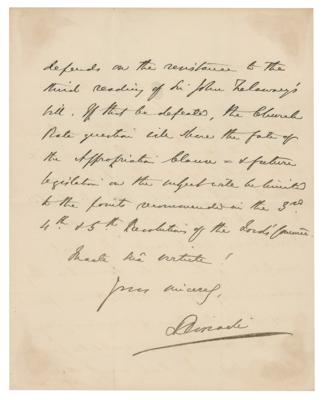 depends on the resistance to the
third reading of Sir John Trelawny's
bill. If that be defeated, the Church
Rate question will share the fate of
the Appropriation Clause - & future
legislation on the subject will be limited
to the points recommended in the 3rd
4th & 5th Resolutions of the Lords' Committee
Macte tuâ virtute!
Yours sincerely,
Disraeli